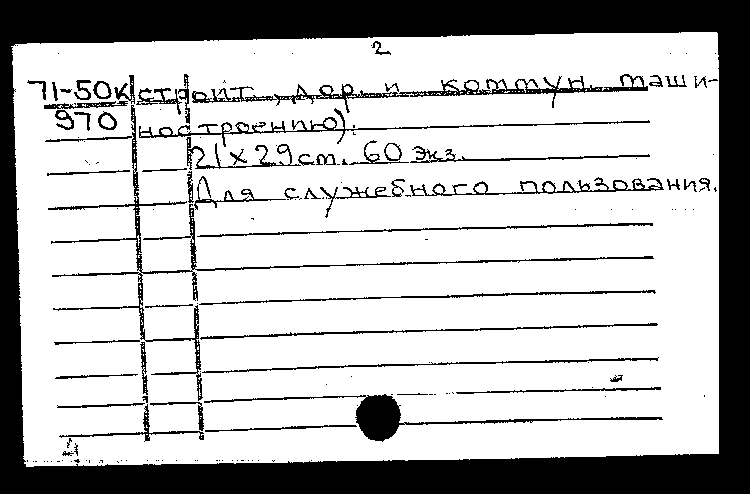 2
71-50к строит., дор. и коммун. маши-
970 ностроению).
21 x 29 cm. 60 экз.
Для служебного пользования.
4